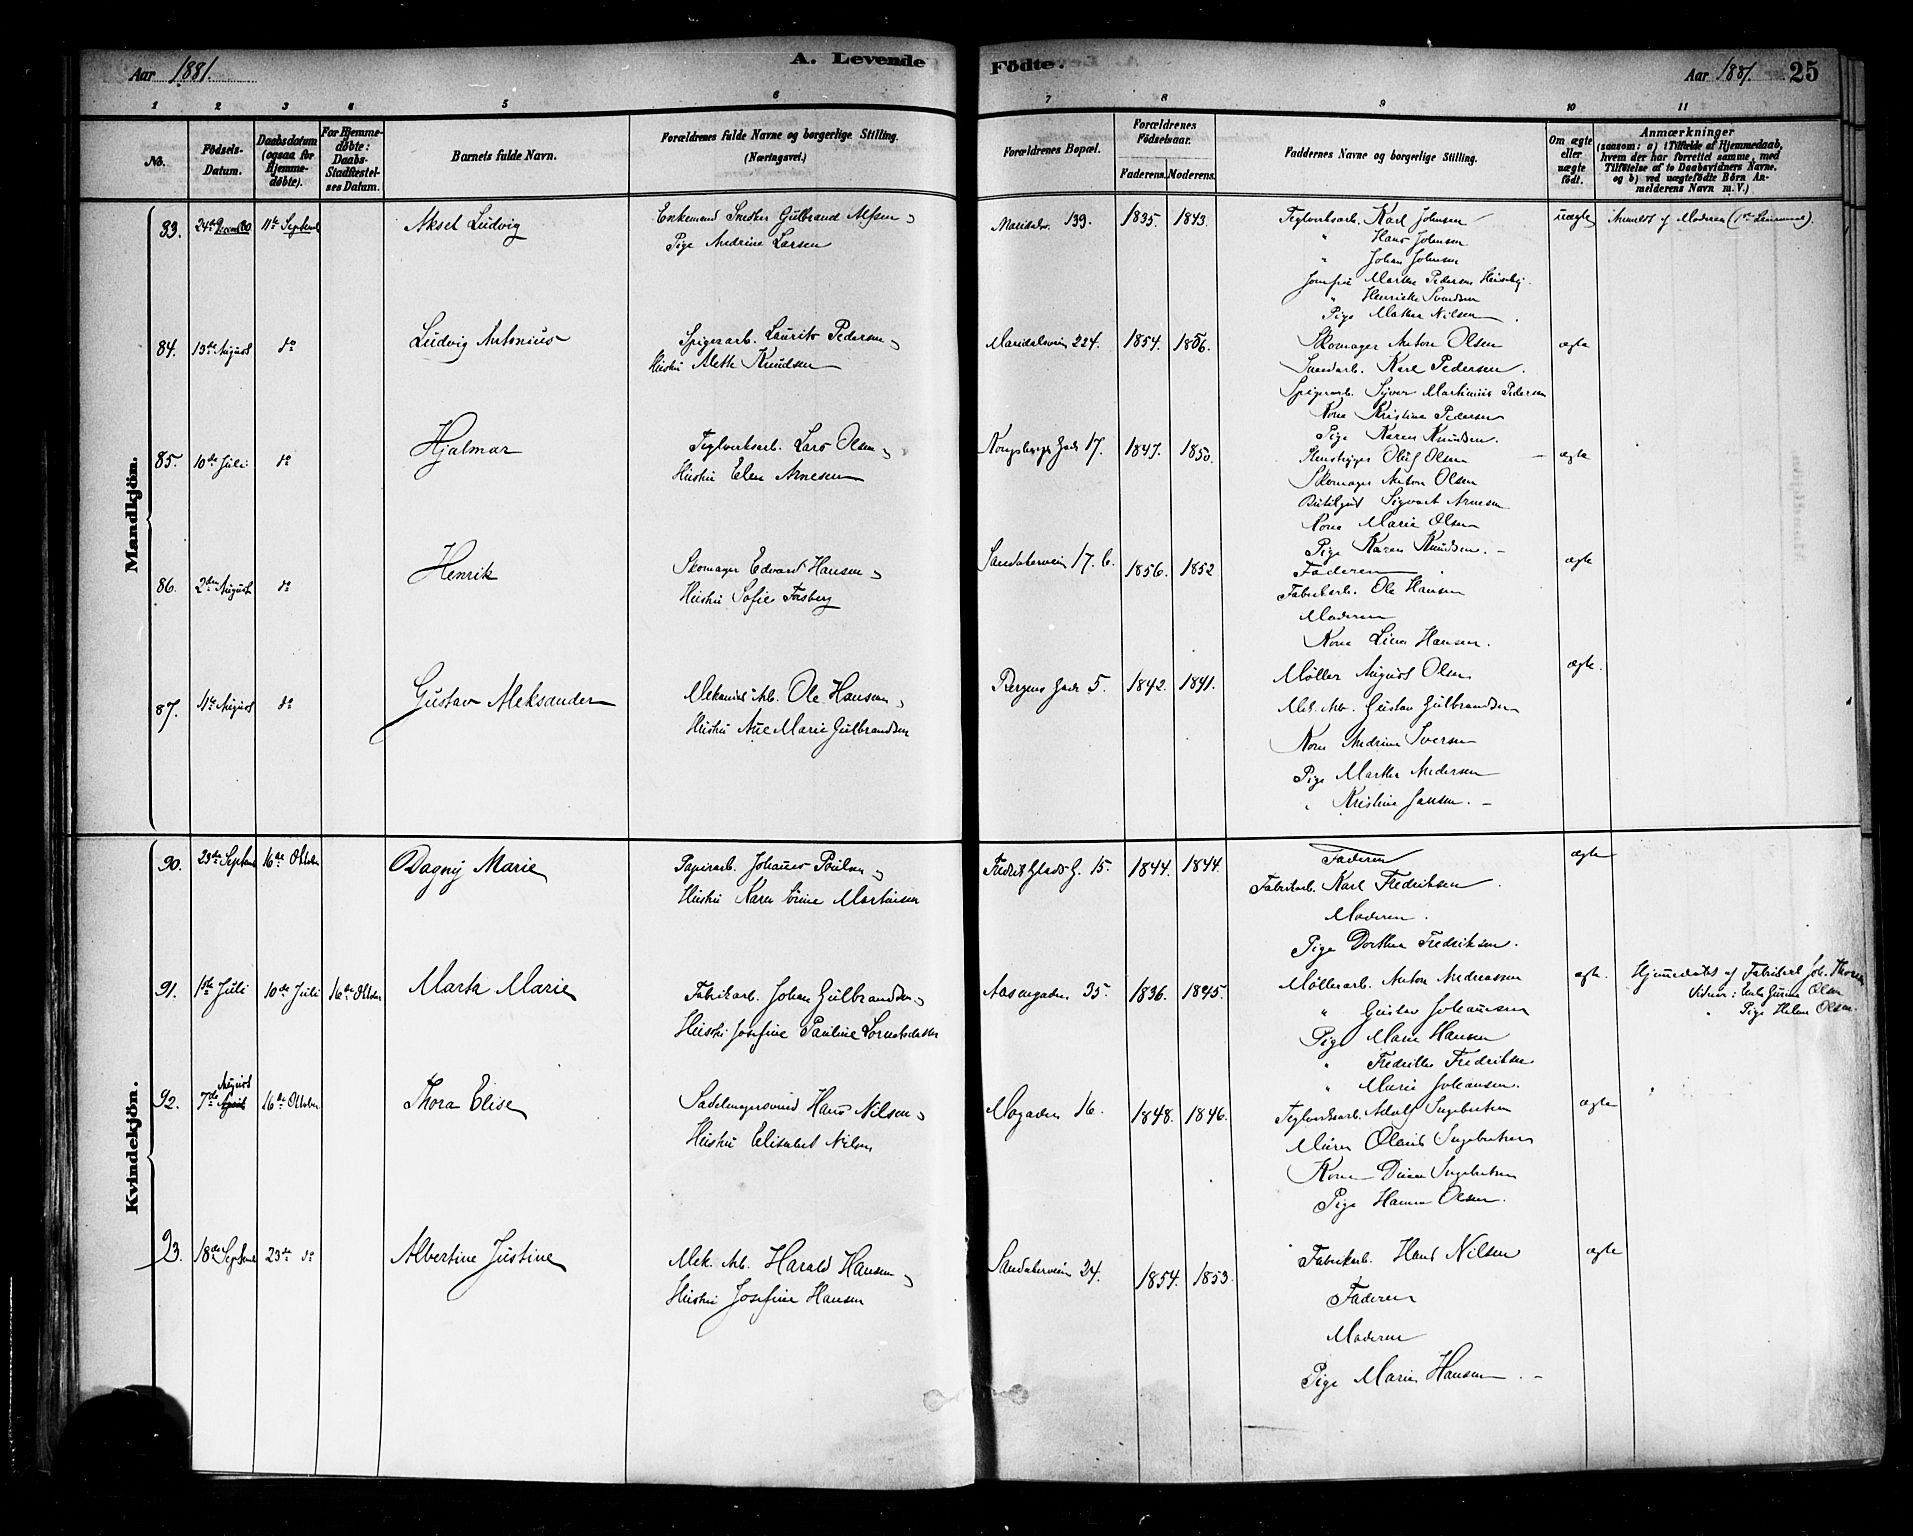 Aar 1881.
A. Levende
Födte.
Aar 1881. 25
1 2 3 4 5 6 7 8 9 10 11
No.
Födsels-Datum.
Daabsdatum (ogsaa for Hjemme-døbte).
For Hjemme-døbte: Daabs-Stadfæstel-ses Datum.
Barnets fulde Navn.
Forældrenes fulde Navne og borgerlige Stilling. (Næringsvei.)
Forældrenes Bopæl.
Forældrenes Födselsaar.
Faderens. Moderens.
Faddernes Navne og borgerlige Stilling.
Om ægte eller uægte født.
Anmærkninger
(saasom: a) i Tilfælde af Hjemmedaab, hvem der har forrettet samme, med Tilföielse af to Daabsvidners Navne, og b) ved uægtefödte Börn An-melderens Navn m. V.)
Mandkjön.
83. 24de Decemb 80 11te Septemb Aksel Ludvig
Enkemand Smeder Gulbrand
Pige Andrine Larsen
139. 1835. 1843.
Teglverksarb. Karl Johnsen
" Hans Johnsen
Johan Johnsen
Jomfru Marthe Pedersen
" Henriette Svendsen
Pige Mathea Nilsen
uægte
Anmeldt af Moderen
84. 13de August do Ludvig Antonius
Spigerarb. Laurits Pedersen
Hustru Aleth Knudsen
Maridalsveien 224. 1854. 1856.
Skomager Anton Olsen
Karl Pedersen.
Spigerarb. Syver Martinius Pedersen
Kone Kristine Pedersen
Pige Karen Knudsen.
ægte
85. 10de Juli do Hjalmar
Teglverksarb. Lars Olsen
Hustru Elen Arnesen
Kongsbergs Gade 17. 1847. 1850.
Stenhugger Oluf Olsen
Skomager Anton Olsen
Sigvart Arnesen
Kone Marie Olsen
Pige Karen Knudsen.
ægte
86. 2den August do Henrik
Skomager Edvard Hansen
Hustru Sofie Forsberg
Sandakerveien 17. b. 1856. 1852
Faderen
Fabrikarb. Ole Hansen
Moderen
Kone Lina Hansen.
ægte
87. 11te August do Gustav Aleksander
Mekanisk Arb. Ole Hansen
Hustru Ane Marie Gulbrandsen
Bergens Gade 5. 1842. 1841.
Møller August Olsen
Mek. Arb. Gustav Gulbrandsen
Kone Andrine Iversen
Pige Marthe Andersen
" Kristine Jansen.
ægte.
Kvindekjön.
90. 23de Septemb 16de Oktober Dagny Marie
Papirarb. Johannes Poulsen
Hustru Karen Martinsen
Fredrik Glads G. 15. 1844. 1844.
Faderen
Fabrikarb. Karl Fredriksen
Moderen.
Pige Dorthea Fredriksen.
ægte
91. 1ste Juli 10de Juli 16de Oktober Marta Marie
Fabrikarb. Johan Gulbrandsen
Hustru Josefine Pauline
Aasengaden 35. 1836. 1845.
Møllerarb. Anton Andreassen
" Gustav Johannsen
Pige Marie Hansen
" Fredrikke Fredriksen
" Marie Johansen.
ægte.
Hjemmedøbt af Fabrikarb. Joh.
Vidner: Enke Gurine Olsen
" Pige Helene Olsen.
92. 7de August April 16de Oktober Thora Elise
Sadelmagersvend Hans Nilsen
Hustru Elisabet Nilsen
Mogaden 16. 1848. 1846.
Teglverksarb. Adolf Ingebretsen
Murer Olaus Ingebretsen
Kone Dina Ingebretsen
Pige Hanna Olsen.
ægte
93. 18de Septemb 23de do Albertine Justine
Mek. Arb. Harald Hansen
Hustru Josefine Hansen
Sandakerveien 24. 1854. 1853.
Fabrikarb. Hans Nilsen
Faderen
Moderen
Pige Marie Hansen.
ægte